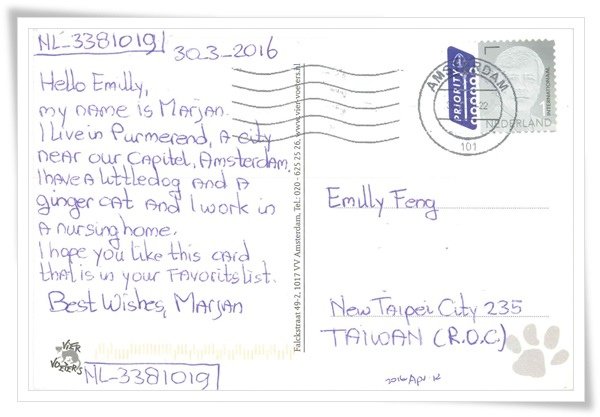 NL-3381019
30.3-2016
Hello Emilly,
my name is Marjan.
I live in Purmerend, a city
near our Capitel, Amsterdam.
I have a little dog and a
ginger cat and I work in
a nursing home.
I hope you like this card
that is in your favorits list.
Best Wishes, Marjan
VIER
VOETERS
NL-3381019
Falckstraat 49-2, 1017 VV Amsterdam, Tel.: 020 - 625 25 26, www.viervoeters.nl
PRIORITY
AMSTERDAM
22
101
1
INTERNATIONAAL
NEDERLAND
Emilly Feng
New Taipei City 235
TAIWAN (R.O.C)
2016 Apr 14